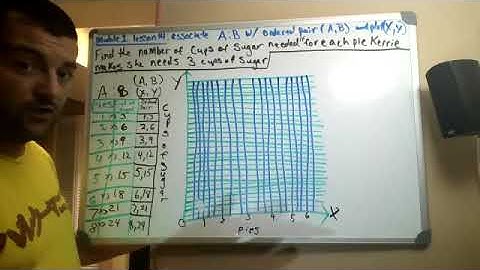 Module 1 lesson 14 associate A:B w/ ordered pair (A,B) and plot (X,Y)
Find the number of Cups of Sugar needed for each pie Kerrie
makes she needs 3 cups of Sugar
A B (A,B)
(X,Y)
1 3 1,3
2 6 2,6
3 9 3,9
4 12 4,12
5 15 5,15
6 18 6,18
7 21 7,21
8 24 8,24
Y
X
0 1 2 3 4 5 6
Pies